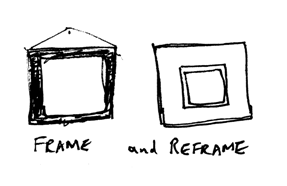 FRAME and REFRAME